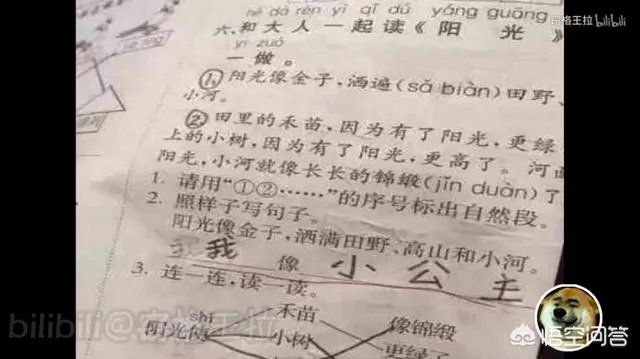 hé dà rén yì qǐ dú yáng guāng
六、和大人一起读《阳光》
yi zuò
一做。
①阳光像金子,洒遍(sǎ biàn)田野、
小河。
②田里的禾苗,因为有了阳光,更绿
上的小树,因为有了阳光,更高了。河面
阳光,小河就像长长的锦缎(jǐn duàn)了
1. 请用“①②……”的序号标出自然段。
2. 照样子写句子。
阳光像金子,洒满田野、高山和小河。
我像小公主
3. 连一连,读一读。
shǐ
阳光使
禾苗
小树
像锦缎
更绿了
bilibili
bilibili@敬格王拉
悟空问答